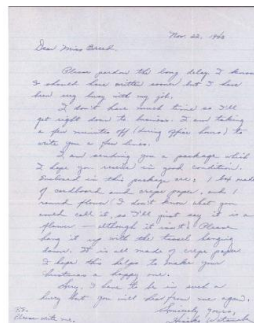 Nov. 22, 1943
Dear Miss Breed,
Please pardon the long delay. I know
I should have written sooner but I have
been very busy with my job.
I don't have much time so I'll
get right down to business. I am taking
a few minutes off (during office hours) to
write you a few lines.
I am sending you a package which
I hope you receive in good condition.
Enclosed in this package are, 1 box made
of cardboard and crepe paper, and 1
round flower (I don't know what you
would call it, so I'll just say it is a
flower - although it isn't). Please
hang it up with the tassel hanging
down. It is all made of crepe paper
I hope this helps to make your
Christmas a happy one.
Sorry I have to be in such a
hurry but you will hear from me again.
Sincerely yours,
P.S.
Please write me.